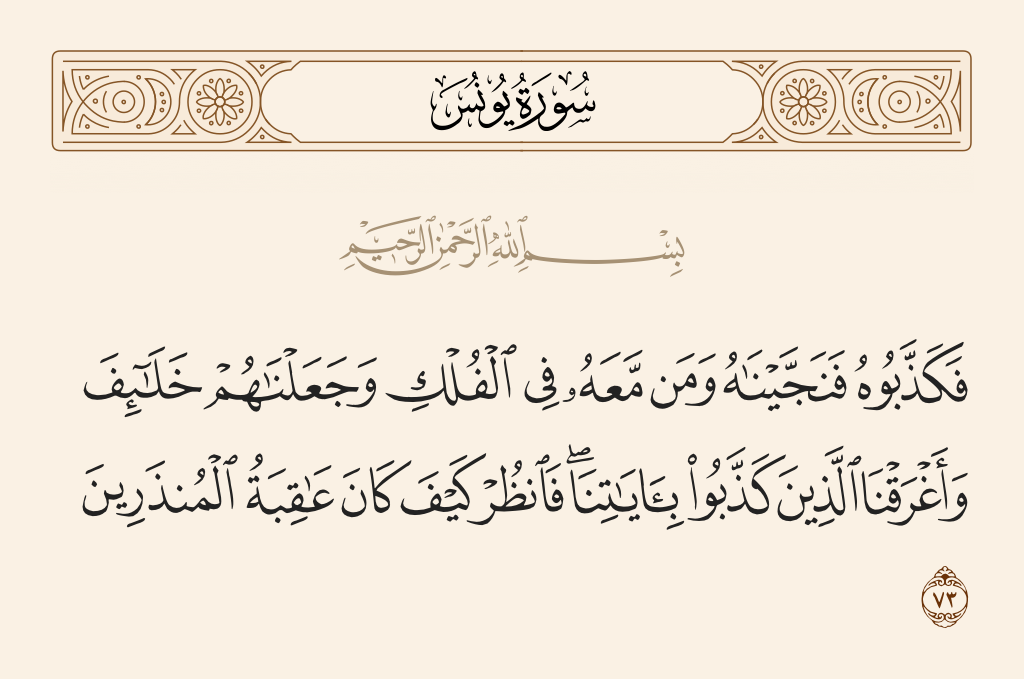 سُورَةُ يُونُسَ
بِسْمِ ٱللَّهِ ٱلرَّحْمَٰنِ ٱلرَّحِيمِ
فَكَذَّبُوهُ فَنَجَّيْنَٰهُ وَمَن مَّعَهُۥ فِى ٱلْفُلْكِ وَجَعَلْنَٰهُمْ خَلَٰٓئِفَ
وَأَغْرَقْنَا ٱلَّذِينَ كَذَّبُوا۟ بِـَٔايَٰتِنَا ۖ فَٱنظُرْ كَيْفَ كَانَ عَٰقِبَةُ ٱلْمُنذَرِينَ
٧٣